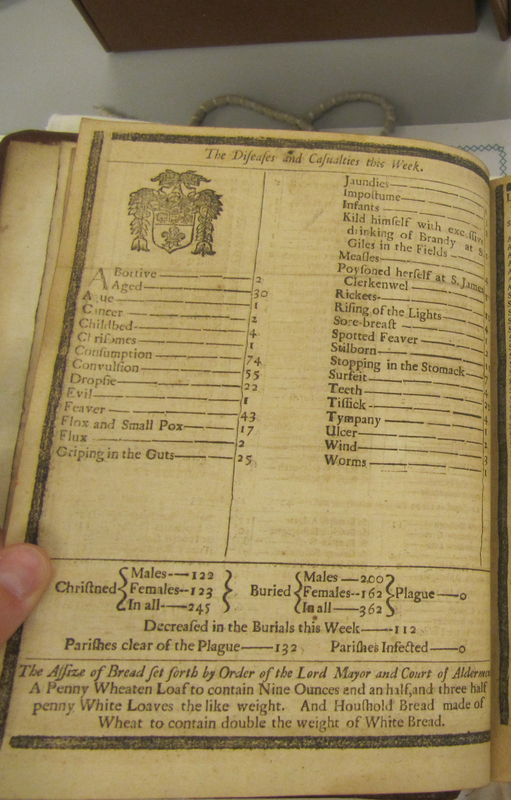 The Diſeaſes and Caſualties this Week.
ABortive 2
Aged 30
Ague 1
Cancer 2
Childbed 4
Chriſomes 1
Conſumption 74
Convulſion 55
Dropſie 22
Evil 1
Feaver 43
Flox and Small Pox 17
Flux 2
Griping in the Guts 25
Jaundies
Impoſtume
Infants
Kild himſelf with exceſſive
drinking of Brandy at S.
Giles in the Fields
Meaſles
Poyſoned herſelf at S. James
Clerkenwel
Rickets
Riſing of the Lights
Sore-breaſt
Spotted Feaver
Stilborn
Stopping in the Stomack
Surfeit
Teeth
Tiſſick
Tympany
Ulcer
Wind
Worms
Chriſtned { Males—122 Females--123 In all—245 } Buried { Males—200 Females--162 In all—362 } Plague—0
Decreaſed in the Burials this Week—112
Pariſhes clear of the Plague—132 Pariſhes Infected—0
The Aſſize of Bread ſet forth by Order of the Lord Mayor and Court of Aldermen
A Penny Wheaten Loaf to contain Nine Ounces and an half, and three half
penny White Loaves the like weight. And Houſhold Bread made of
Wheat to contain double the weight of White Bread.